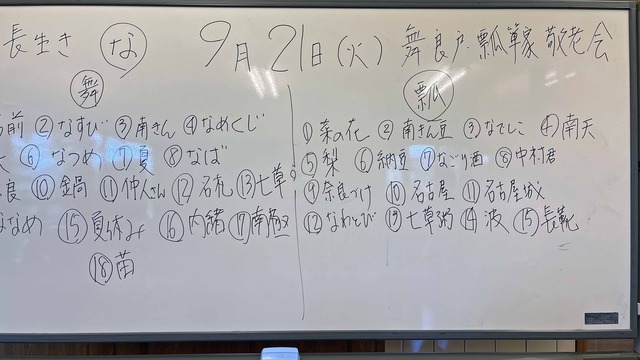 長生き な 9月21日(火) 舞良戸・瓢箪家 敬老会
舞
前 ②なすび ③南きん ④なめくじ
⑥なつめ ⑦夏 ⑧なば
良 ⑩鍋 ⑪仲人さん ⑫名札 ⑬七草
ななめ ⑮夏休み ⑯内緒 ⑰南極
⑱苗
瓢
①菜の花 ②南きん豆 ③なでしこ ④南天
⑤梨 ⑥納豆 ⑦なごり雨 ⑧中村君
⑨奈良づけ ⑩名古屋 ⑪名古屋城
⑫なわとび ⑬七草粥 ⑭波 ⑮長靴